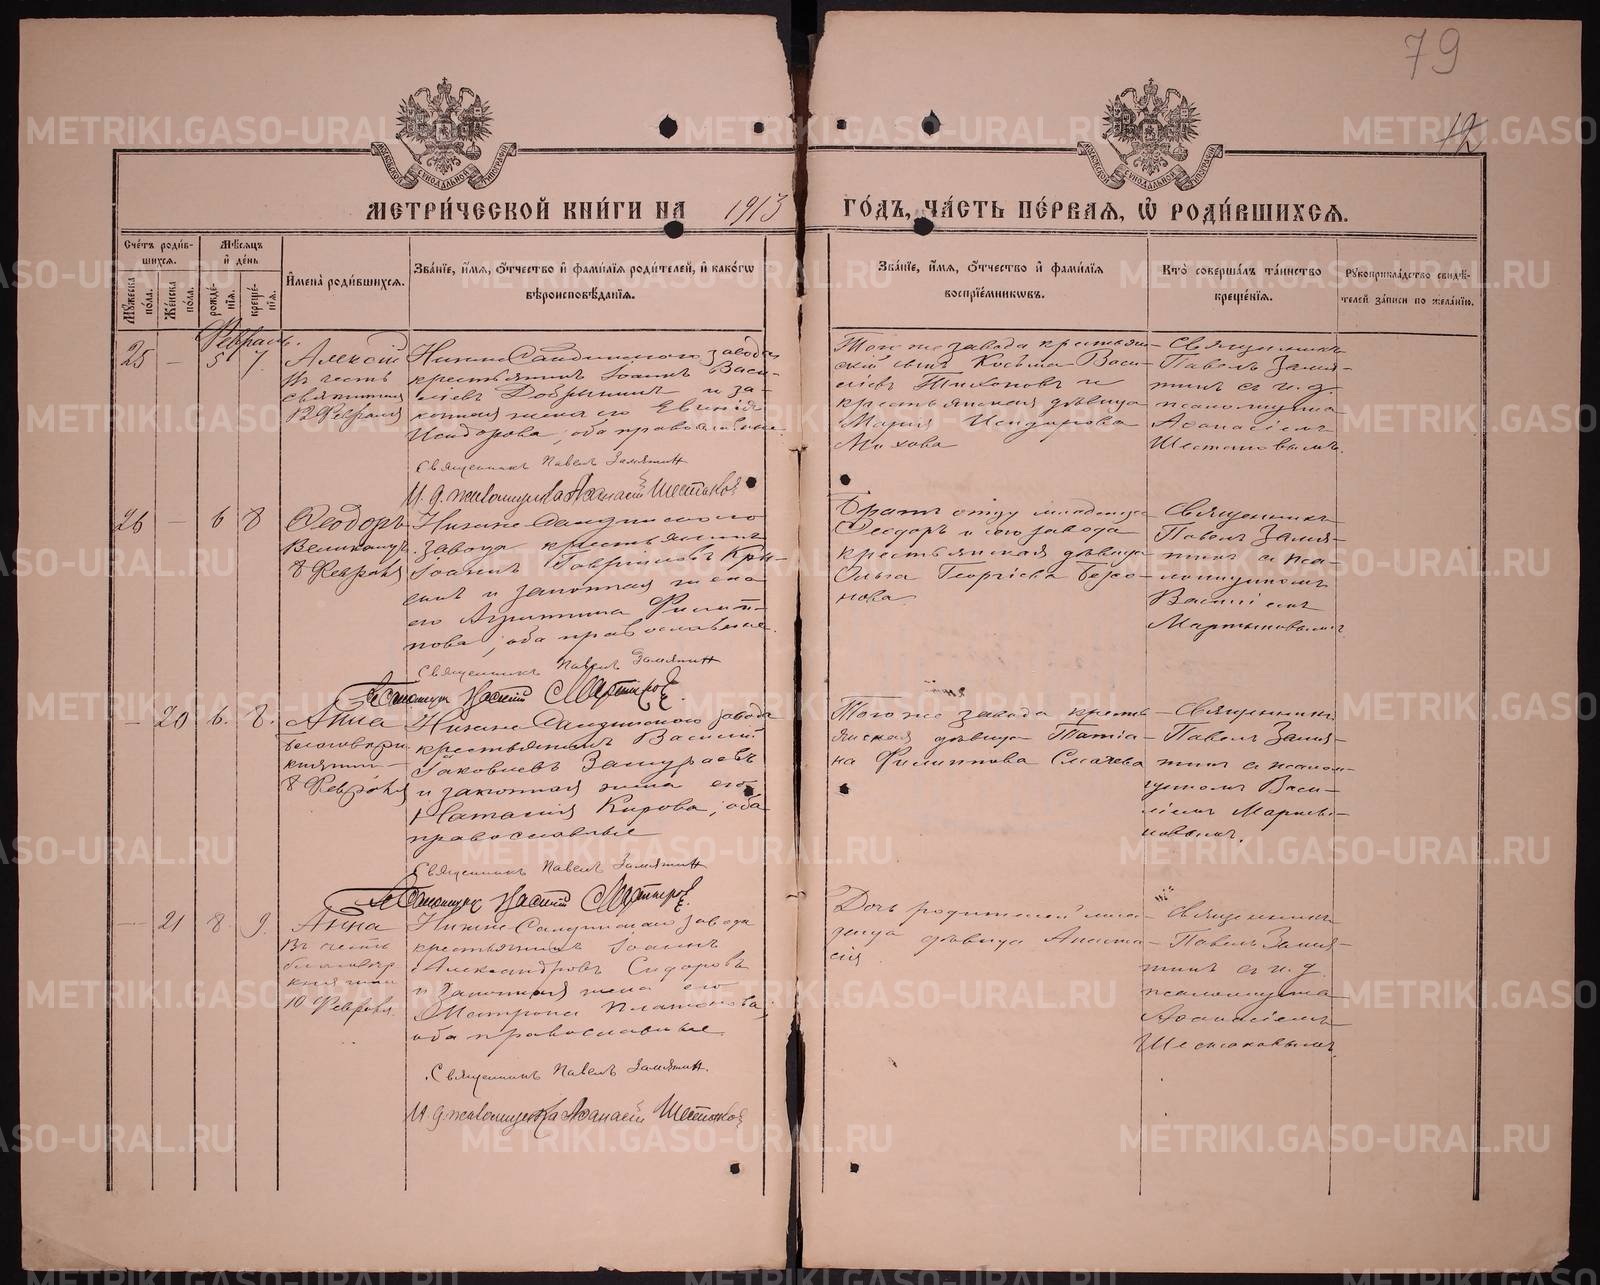 79
12
МЕТРИ́ЧЕСКОЙ КНИ́ГИ НА 1913 ГО́ДЪ, ЧА́СТЬ ПЕ́РВАЯ, Ѡ҆ РОДИ́ВШИХСЯ.
Сче́тъ роди́в-
шихся.
Му́жеска по́ла.
Же́нска по́ла.
Мѣ́сяцъ
и҆ де́нь
рожде́-
нїя.
креще́-
нїя.
И҆мена̀ роди́вшихся.
Зва́нїе, и҆́мя, ѻ҆́тчество и҆ фами́лїя роди́телей, и҆ како́гѡ
вѣроисповѣ́данїя.
Зва́нїе, и҆́мя, ѻ҆́тчество и҆ фами́лїя
воспрїе́мникѡвъ.
Кто̀ соверша́лъ та́инство
креще́нїя.
Рꙋкоприкла́дство свидѣ́-
телей за́писи по жела́нїю.
Февраль.
25 — 5 7
Алексій
въ честь
святителя
12 Февраля
Нижне Салдинского завода
крестьянинъ Іоаннъ Васи-
ліевъ Добрынинъ и за-
конная жена его Евгенія
Исидорова, оба православные
Священникъ Павелъ Замятин
И. д. псаломщика Афанасій Шестаков
Того же завода крестьян-
скій сынъ Косьма Васи-
ліевъ Тихоновъ и
крестьянская дѣвица
Марія Исидорова
Махова
Священникъ
Павелъ Замя-
тинъ съ и. д.
псаломщика
Афанасіемъ
Шестаковымъ.
26 — 6 8
Феодоръ
Великомуч.
8 Февраля
Нижне Салдинского
завода крестьянинъ
Іоаннъ Гавриловъ
и законная жена
его Агриппина Филип-
пова, оба православные.
Священникъ Павелъ Замятин
Псаломщик Василій Мартынов
Братъ отцу младенца
Феодоръ и сего завода
крестьянская дѣвица
Ольга Георгіева
Священникъ
Павелъ Замя-
тинъ съ пса-
ломщикомъ
Василіемъ
Мартыновымъ
— 20 6. 8.
Анна
8 Февраля
Нижне Салдинского завода
крестьянинъ Василій
Іаковлевъ Замураевъ
и законная жена его
Наталія Кирова, оба
православные
Священникъ Павелъ Замятин
Псаломщик Василій Мартынов
Того же завода кресть-
янская дѣвица Татіа-
на Филиппова
Священникъ
Павелъ Замя-
тинъ съ псалом-
щикомъ Васи-
ліемъ Марты-
новымъ.
— 21 8. 9.
Анна
въ честь
10 Февраля
Нижне Салдинскаго завода
крестьянинъ Іоаннъ
Александровъ Сидоровъ
и законная жена его
Матрона Платонова,
оба православные
Священникъ Павелъ Замятин.
И. д. псаломщика Афанасій Шестаков
Дочь родителей мла-
денца дѣвица Анаста-
сія
Священникъ
Павелъ Замя-
тинъ съ и. д.
псаломщика
Афанасіемъ
Шестаковымъ.
METRIKI.GASO-URAL.RU